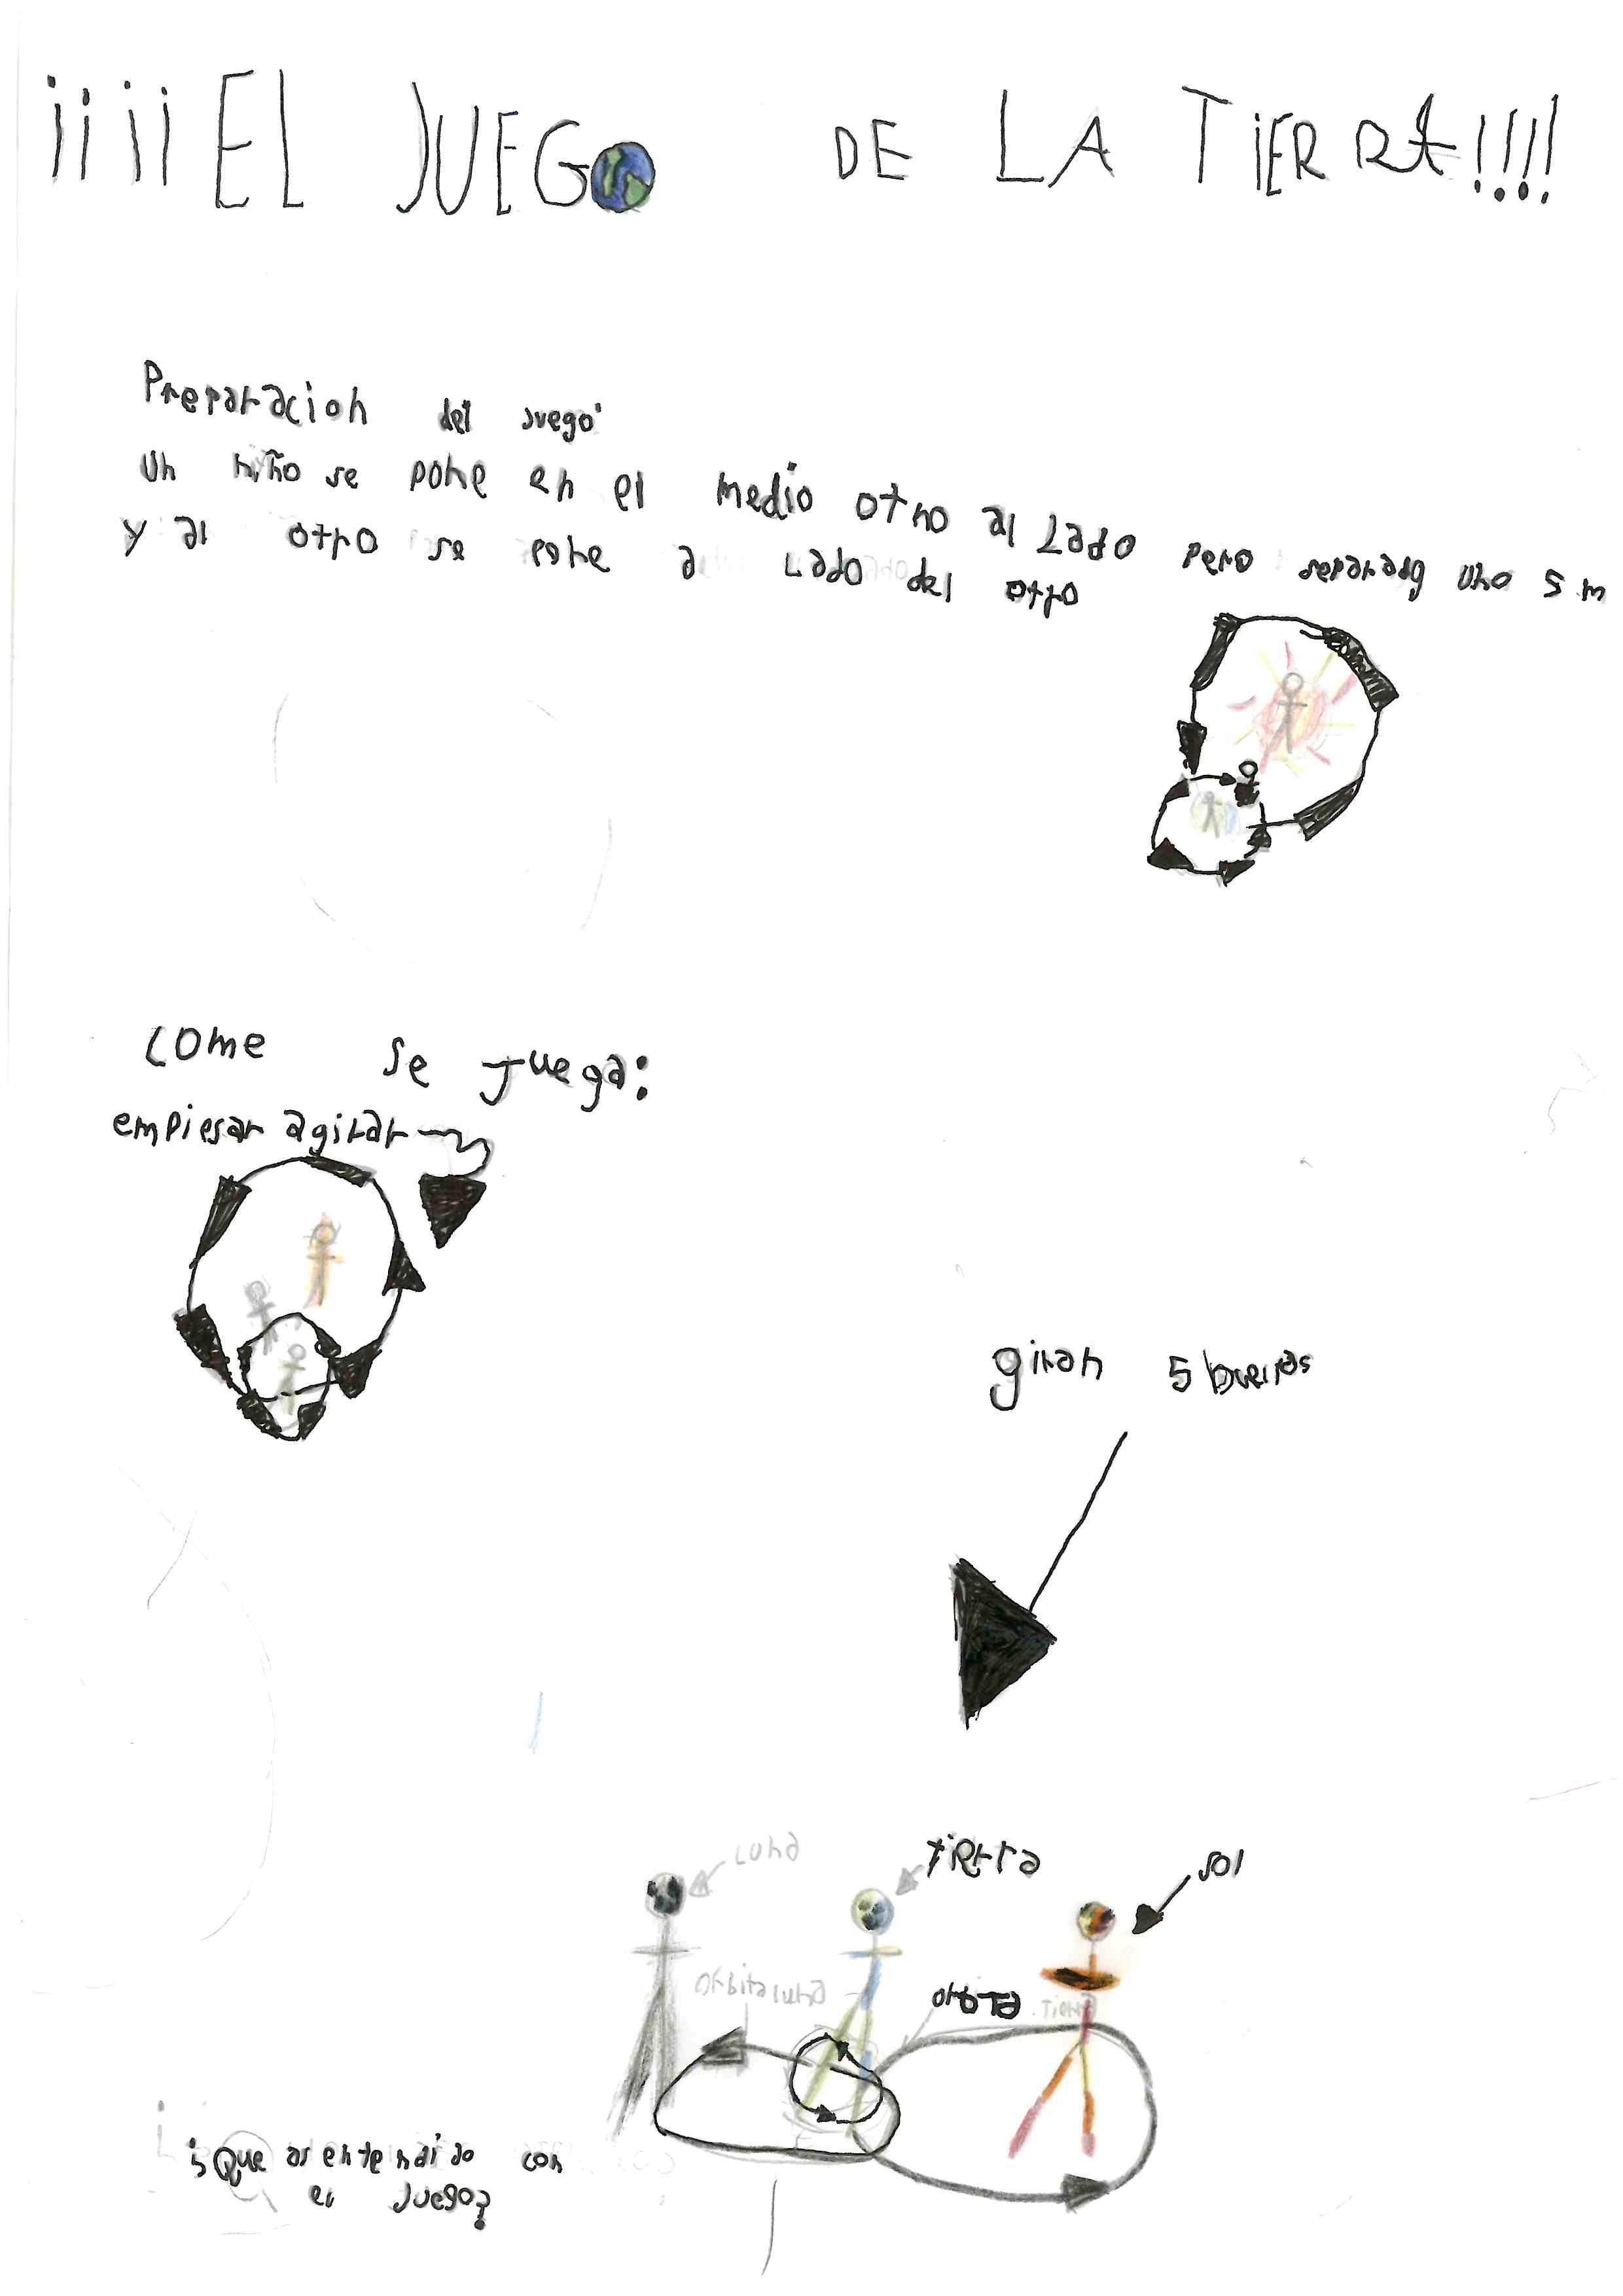 ¡¡¡¡EL JUEGO DE LA TIERRA!!!!
Preparacion del juego:
un niño se pone en el medio otro al Lado pero separado uno 5 m
y al otro se pone a Lado del otro
come se juega:
empiesar agirar
giran 5 bueltas
Luna
tierra
sol
Orbita luna
orbita Tierra
¿Que as entendido con
el juego?